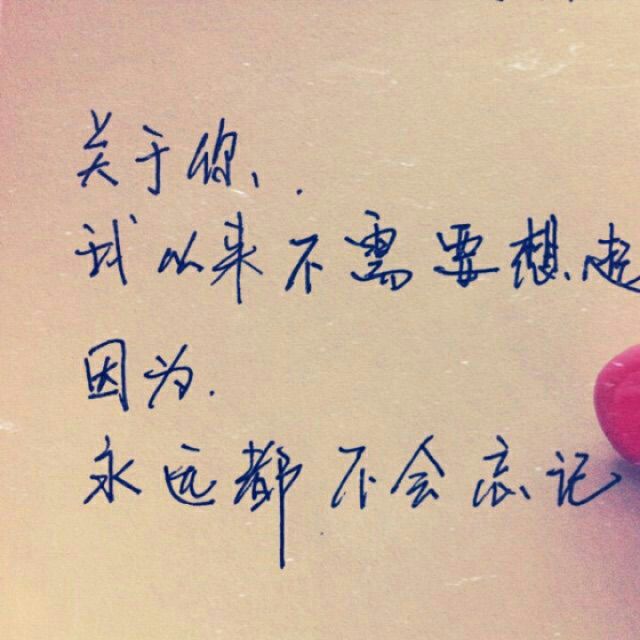 关于你、.
我从来不需要想起
因为.
永远都不会忘记